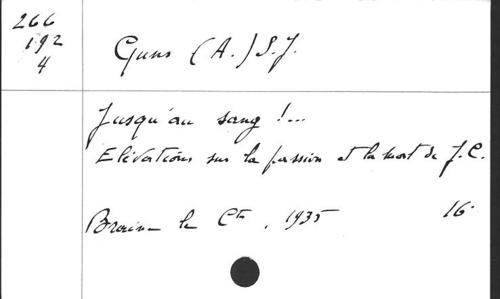 266
192
4
Guns (A.) S.J.
Jusqu'au sang !...
Elévations sur la passion et la mort de J.C.
Braine le Cte, 1935 16°